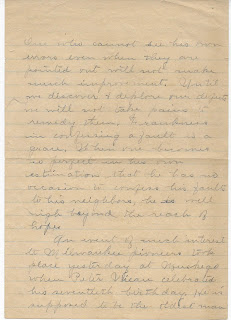 One who cannot see his own
errors even when they are
pointed out will not make
much improvement. Until
we discover & deplore our defects
we will not take pains to
remedy them. Frankness
in confessing a fault is a
grace. When one becomes
so perfect in his own
estimation that he has no
occasion to confess his faults
to his neighbors, he is well
nigh beyond the reach of
hope.
An event of much interest
to Milwaukee pioneers took
place yesterday at Muskego
when Peter celebrated
his seventieth birthday. He is
supposed to be the oldest man